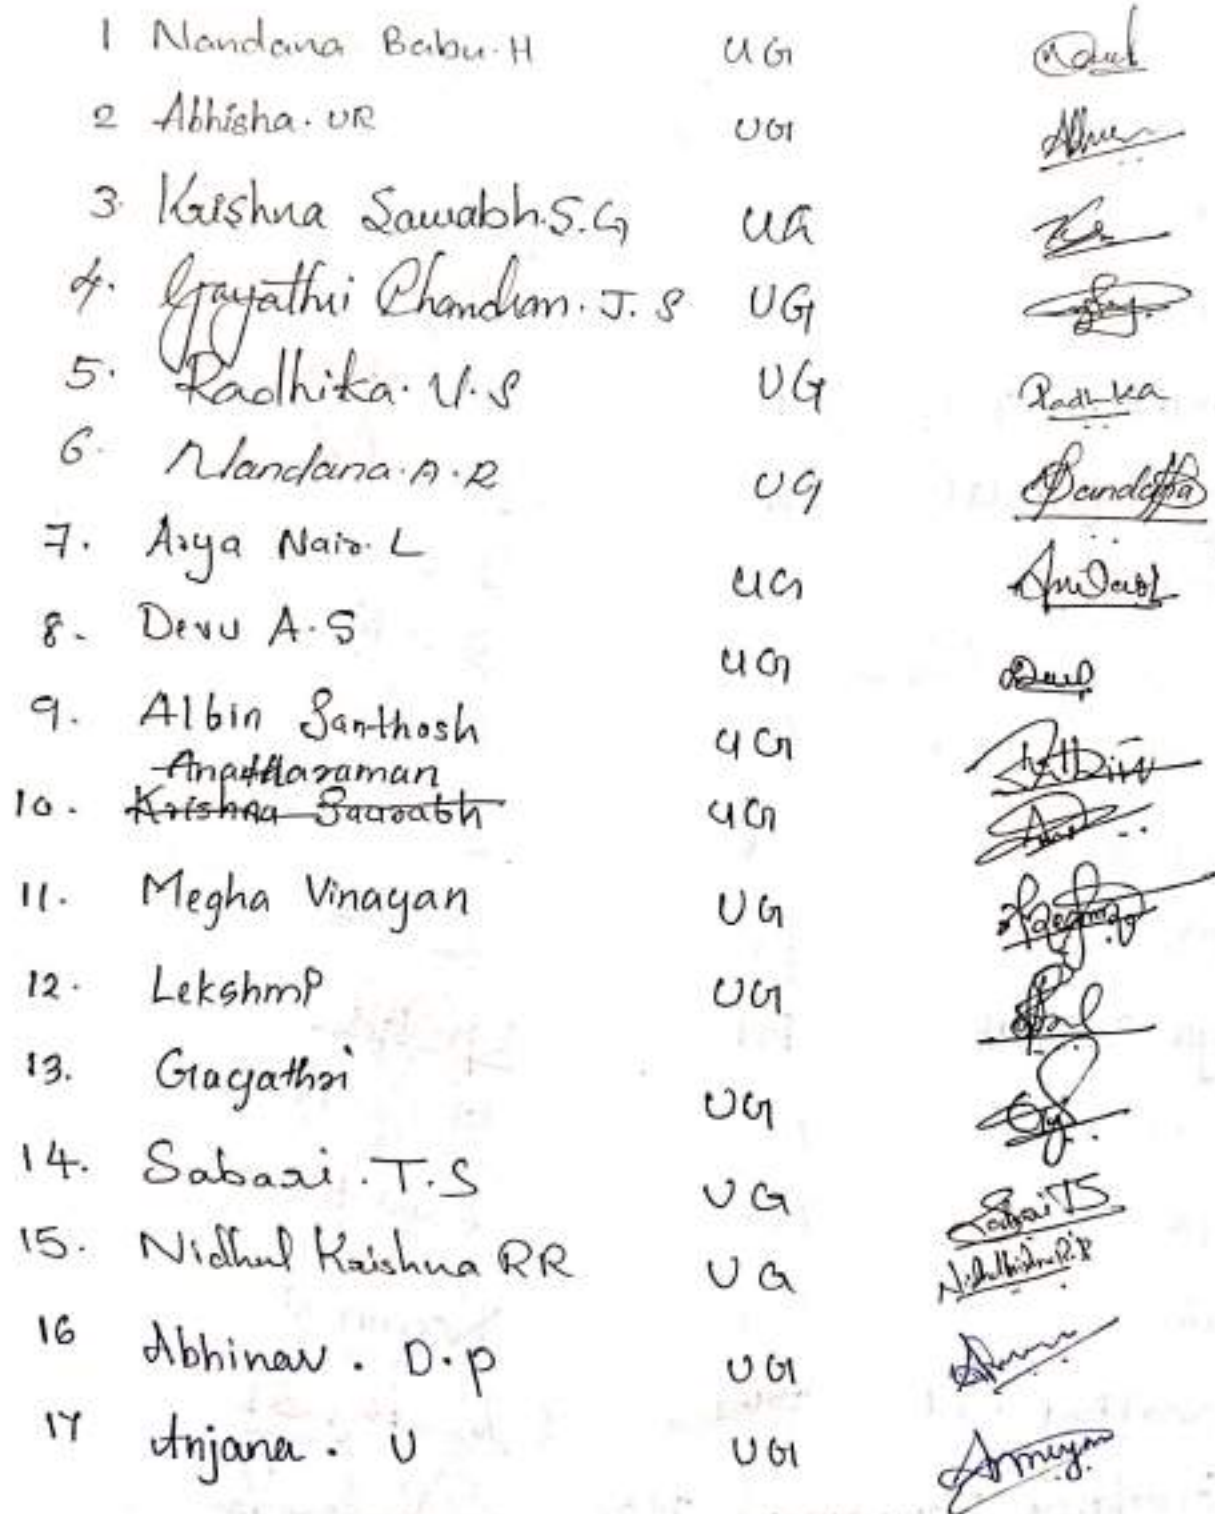 1 Nandana Babu. H UG
2 Abhisha. UR UG
3. Krishna Sourabh. S. G UG
4. Gayathri Chandran. J. S UG
5. Radhika. V. S UG Radhika
6. Nandana. A. R UG
7. Arya Nair. L UG
8. Devu A. S UG
9. Albin Santhosh UG
Anantharaman
10. Krishna Saurabh UG
11. Megha Vinayan UG
12. Lekshmi UG
13. Gayathri UG
14. Sabari. T. S UG Sabari TS
15. Nidhul Krishna RR UG
16 Abhinav. D. P UG
17 Anjana. U UG